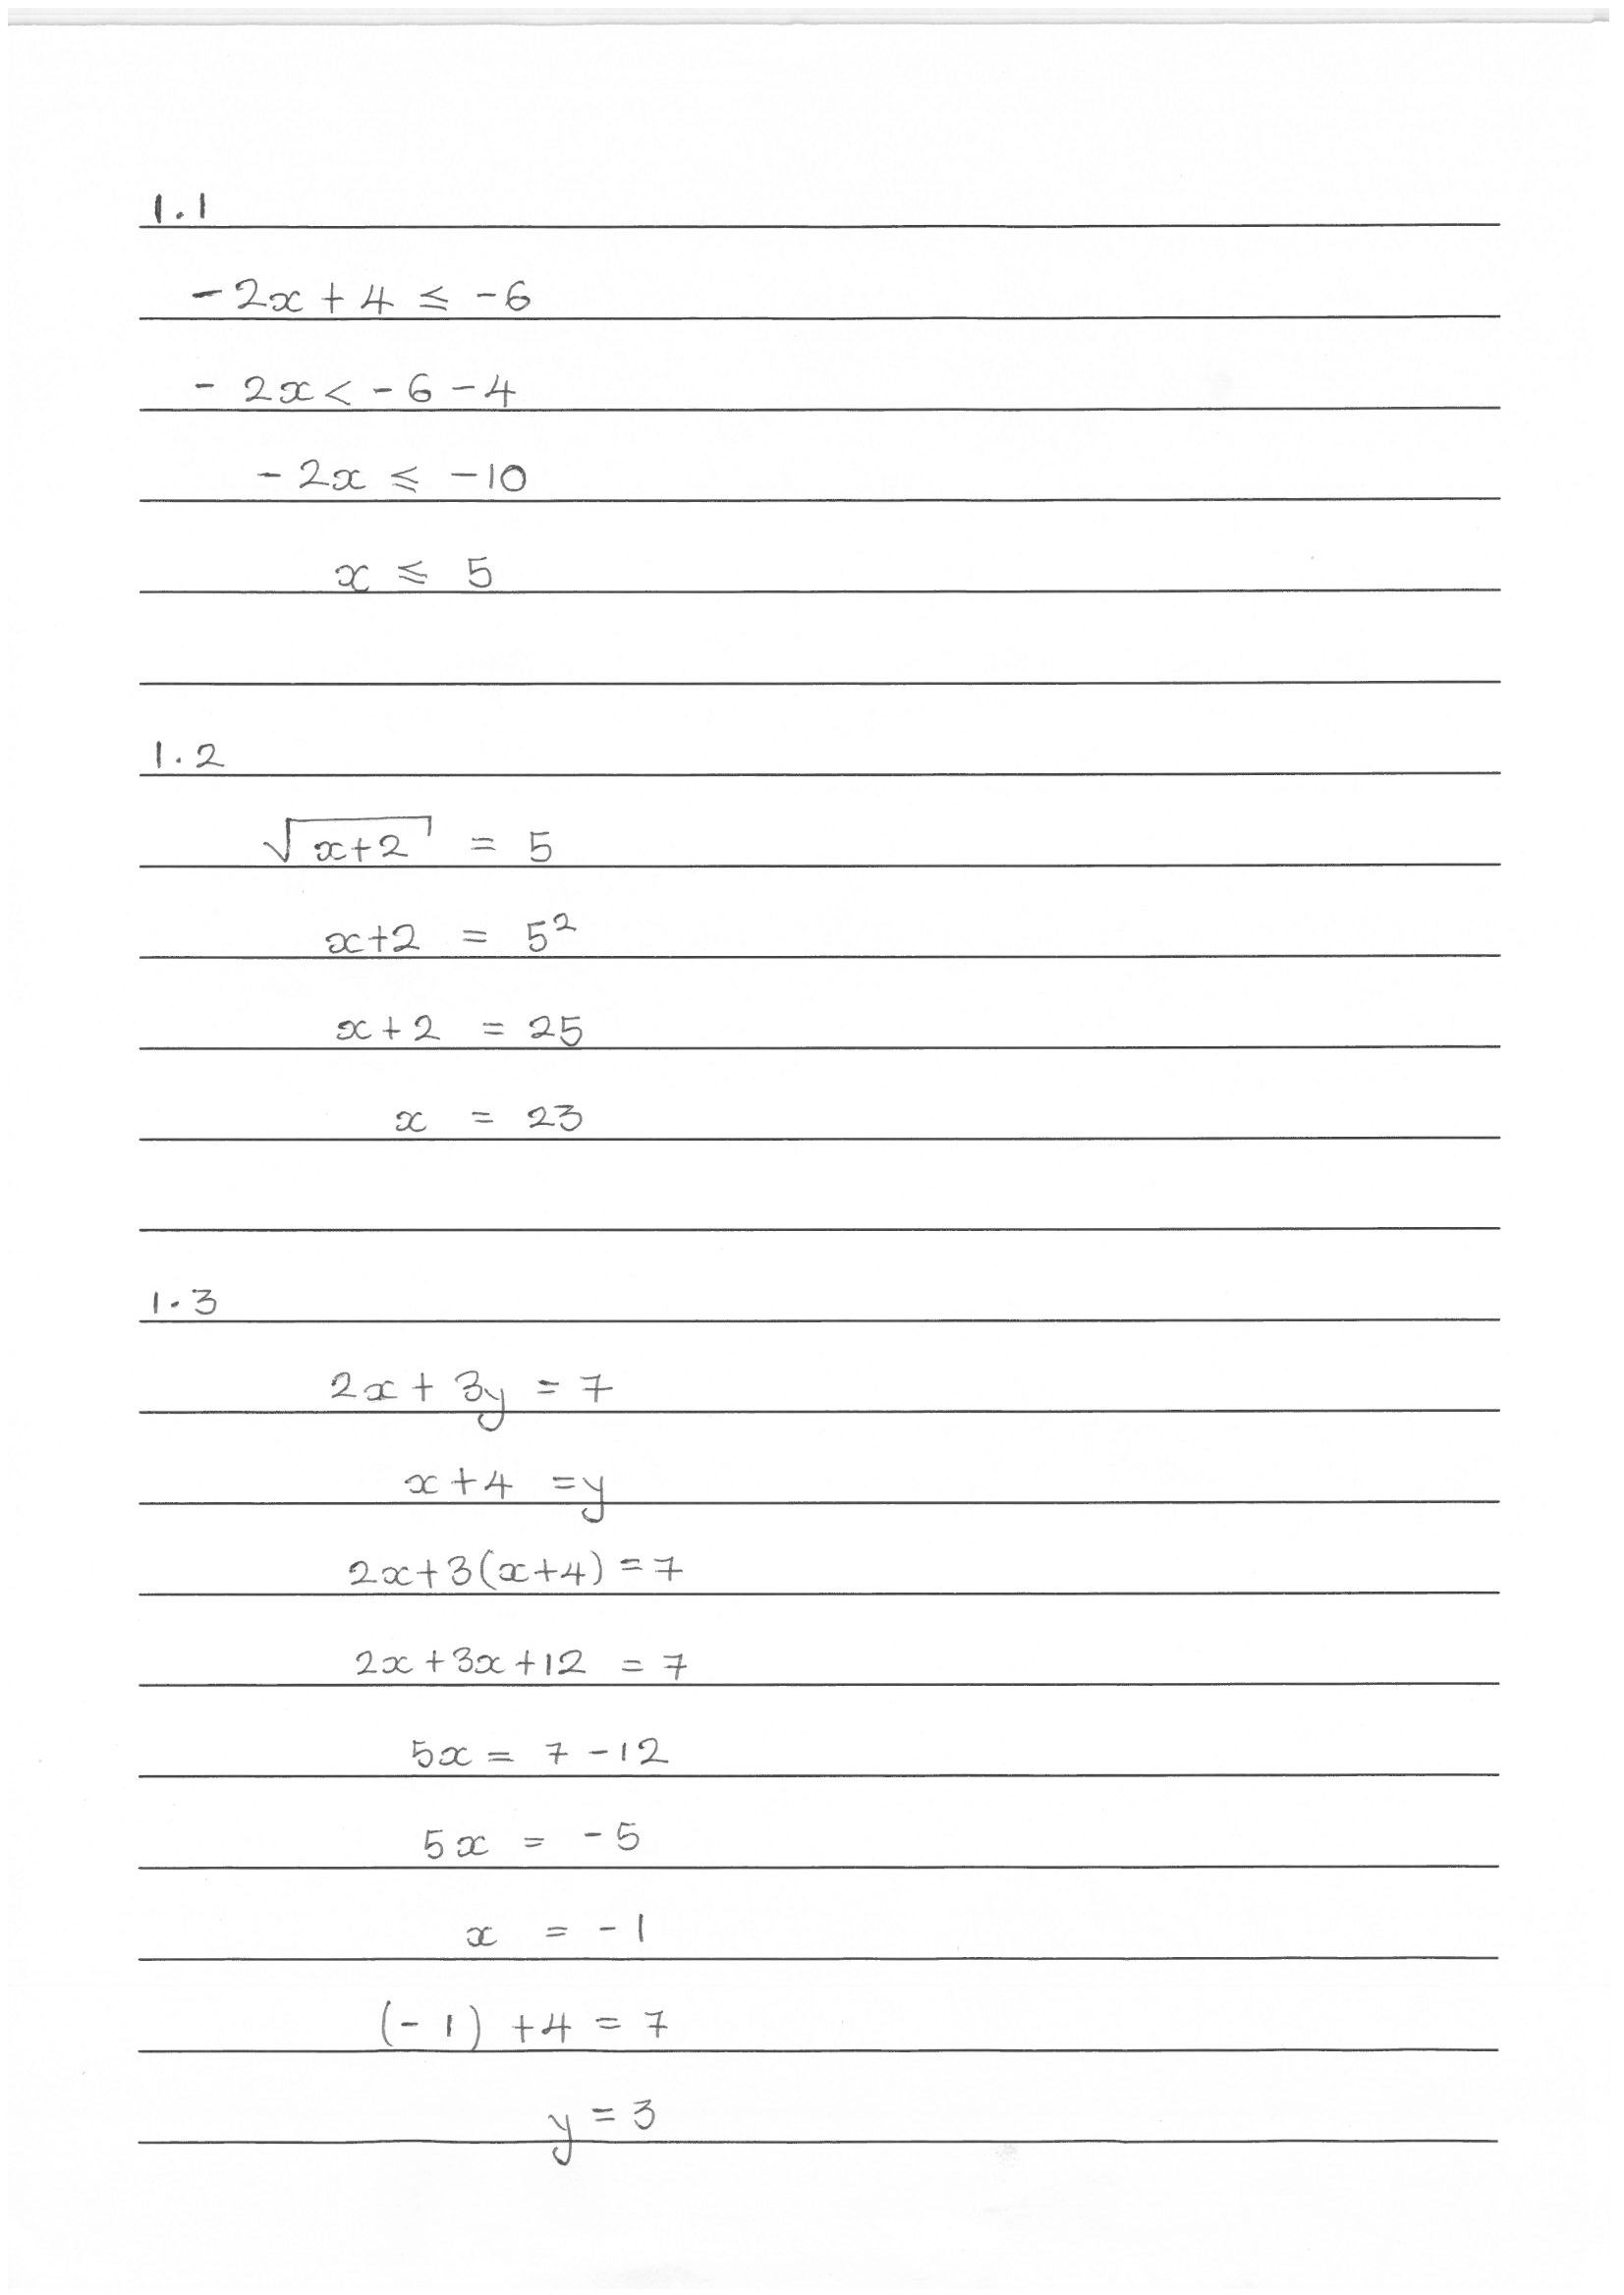 1.1
-2x + 4 ≤ -6
- 2x < - 6 - 4
- 2x ≤ -10
x ≤ 5
1.2
√(x+2) = 5
x+2 = 5²
x+2 = 25
x = 23
1.3
2x + 3y = 7
x + 4 = y
2x+3(x+4) = 7
2x + 3x + 12 = 7
5x = 7 - 12
5x = -5
x = -1
(-1) + 4 = 7
y = 3